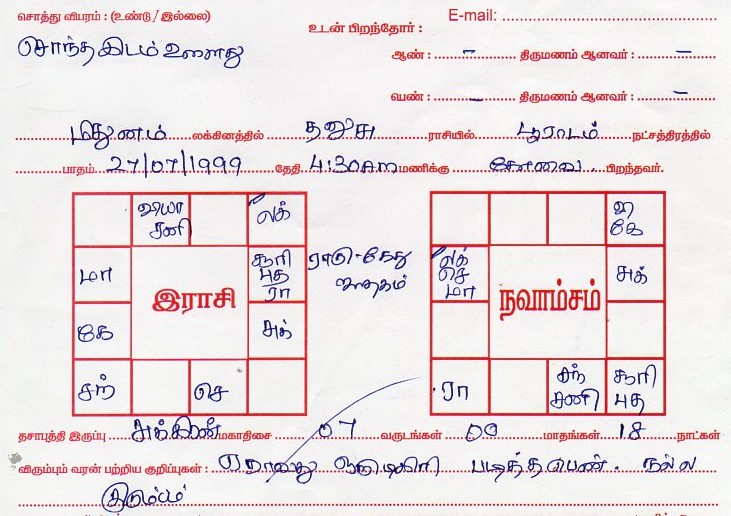 சொத்து விபரம் : (உண்டு / இல்லை) E-mail:
உடன் பிறந்தோர் :
சொந்த இடம் உள்ளது
ஆண் : – திருமணம் ஆனவர் : –
பெண் : – திருமணம் ஆனவர் : –
மிதுனம் லக்கினத்தில் தனுசு ராசியில் பூராடம் நட்சத்திரத்தில்
பாதம் 27/07/1999 தேதி 4:30AM மணிக்கு கோவை பிறந்தவர்.
வியா
சனி
லக்
மா
சூரி
புத
ரா
கே
சுக்
சந்
செ
இராசி
ராகு-கேது
ஜாதகம்
வி
கே
லக்
செ
மா
சுக்
ரா
சந்
சனி
சூரி
புத
நவாம்சம்
தசாபுத்தி இருப்பு சுக்கிரன் மகாதிசை 07 வருடங்கள் 00 மாதங்கள் 18 நாட்கள்
விரும்பும் வரன் பற்றிய குறிப்புகள் : ஏதாவது டிகிரி படித்த பெண். நல்ல
குடும்பம்